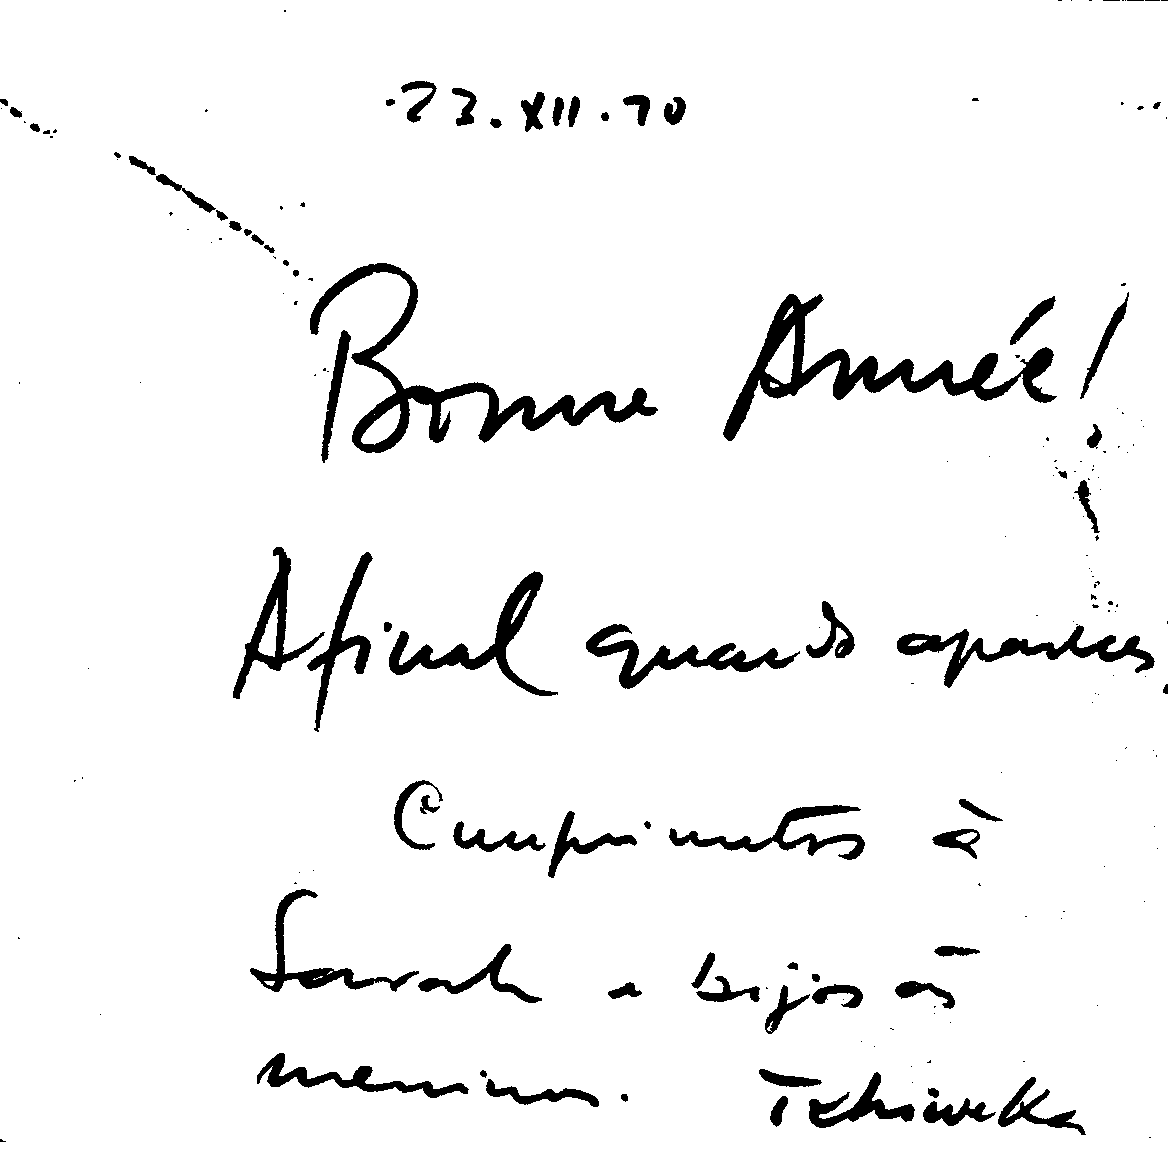 23.XII.70
Bonne Année!
Afinal quando apareces
Cumprimentos à
Sarah e bijos às
meninas. Tchiweka